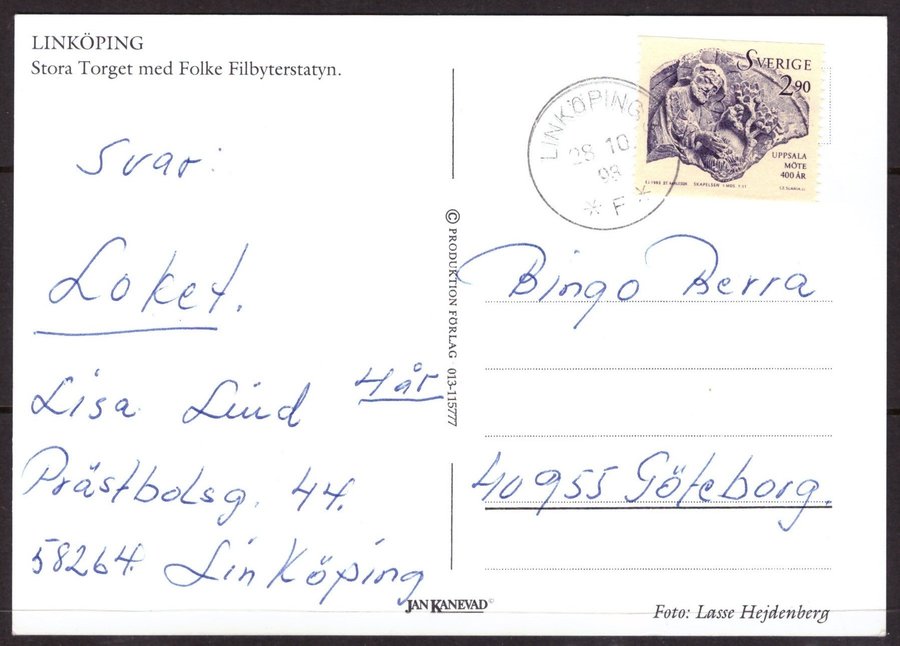 LINKÖPING
Stora Torget med Folke Filbyterstatyn.
Svar:
Loket.
Lisa Lind 4 år
Prästbolsg. 44.
58264. Linköping
© PRODUKTION FÖRLAG 013-115777
LINKÖPING
28 10
93
* F *
SVERIGE
2.90
UPPSALA
MÖTE
400 ÅR
SKAPELSEN 1 MOS. 1:11
Bingo Berra
40955 Göteborg.
JAN KANEVAD©
Foto: Lasse Hejdenberg